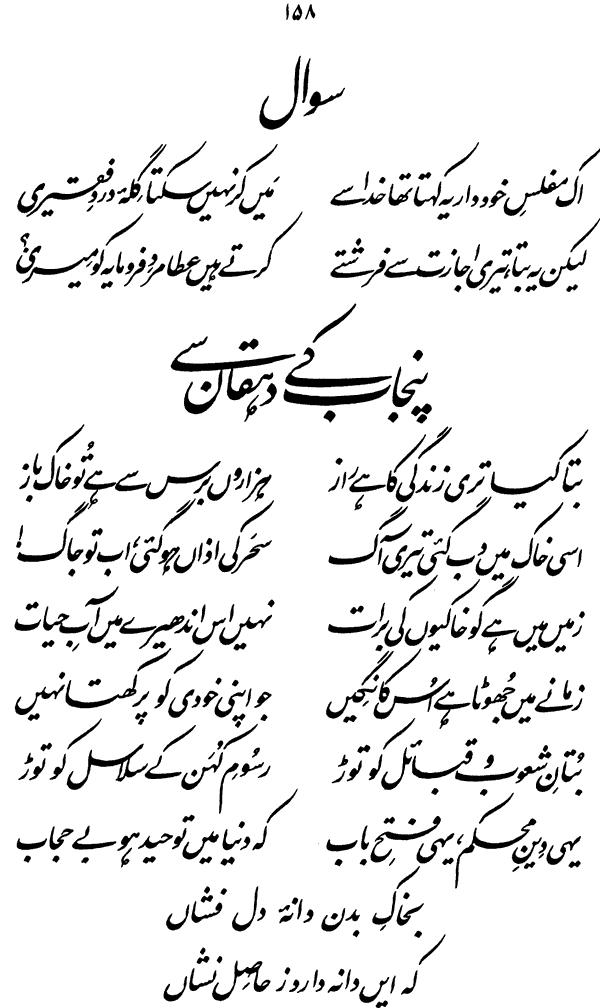 ۱۵۸
سوال
اک مفلسِ خود دار یہ کہتا تھا خدا سے مَیں کر نہیں سکتا گلۂ دردِ فقیری
لیکن یہ بتا، تیری اجازت سے فرشتے کرتے ہیں عطا مردِ فرومایہ کو مِیری؟
پنجاب کے دہقان سے
بتا کیا تری زندگی کا ہے راز ہزاروں برس سے ہے تُو خاک باز
اسی خاک میں دب گئی تیری آگ سَحَر کی اذاں ہوگئی، اب تو جاگ!
زمیں میں ہے گو خاکیوں کی برات نہیں اس اندھیرے میں آبِ حیات
زمانے میں جُھوٹا ہے اُس کا نگِیں جو اپنی خودی کو پرکھتا نہیں
بُتانِ شعوب و قبائل کو توڑ رسُومِ کُہَن کے سلاسل کو توڑ
یہی دِینِ محکم، یہی فتحِ باب کہ دنیا میں توحید ہو بے حجاب
بخاکِ بدن دانۂ دل فشاں
کہ ایں دانہ دارد ز حاصِل نشاں